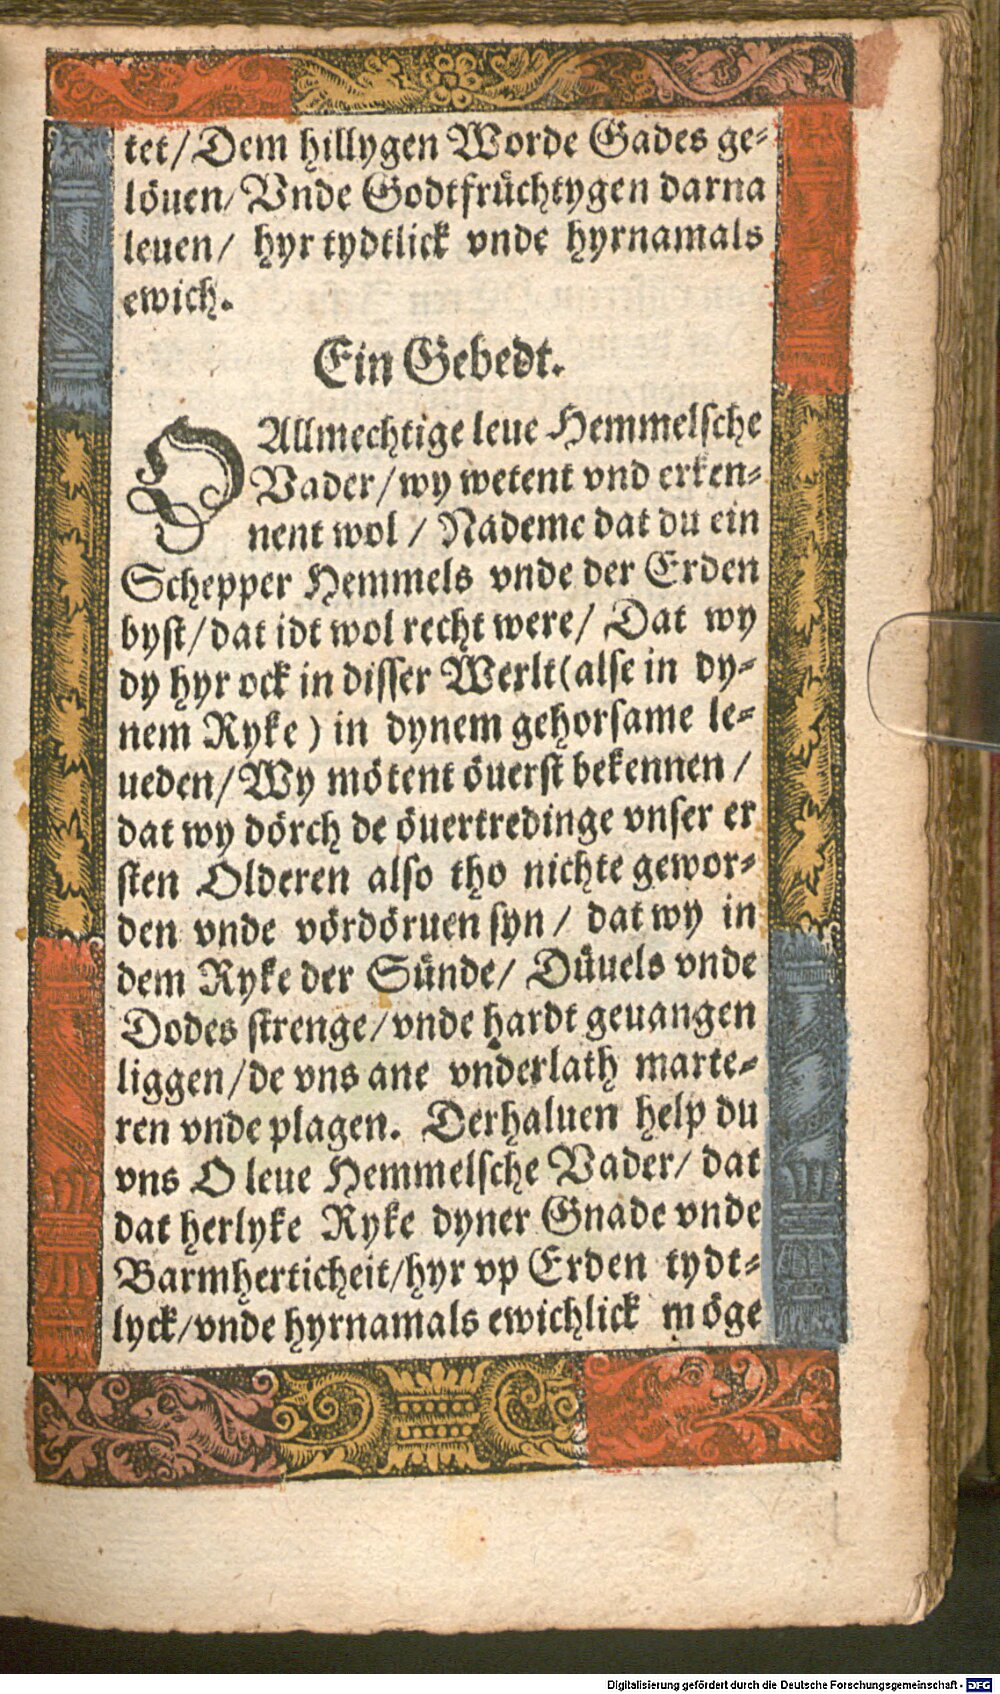 tet/ Dem hillygen Worde Gades ge-
löuen/ Vnde Godtfrüchtygen darna
leuen/ hyr tydtlick vnde hyrnamals
ewich.
Ein Gebedt.
O Allmechtige leue Hemmelsche
Vader/ wy wetent vnd erken-
nent wol / Nademe dat du ein
Schepper Hemmels vnde der Erden
byst/ dat idt wol recht were/ Dat wy
dy hyr ock in disser Werlt (alse in dy-
nem Ryke) in dynem gehorsame le-
ueden/ Wy mötent öuerst bekennen /
dat wy dörch de öuertredinge vnser er
sten Olderen also tho nichte gewor-
den vnde vördöruen syn / dat wy in
dem Ryke der Sünde/ Düuels vnde
Dodes strenge/ vnde hardt geuangen
liggen/ de vns ane vnderlath marte-
ren vnde plagen. Derhaluen help du
vns O leue Hemmelsche Vader/ dat
dat herlyke Ryke dyner Gnade vnde
Barmherticheit/ hyr vp Erden tydt-
lyck/ vnde hyrnamals ewichlick möge
Digitalisierung gefördert durch die Deutsche Forschungsgemeinschaft - DFG